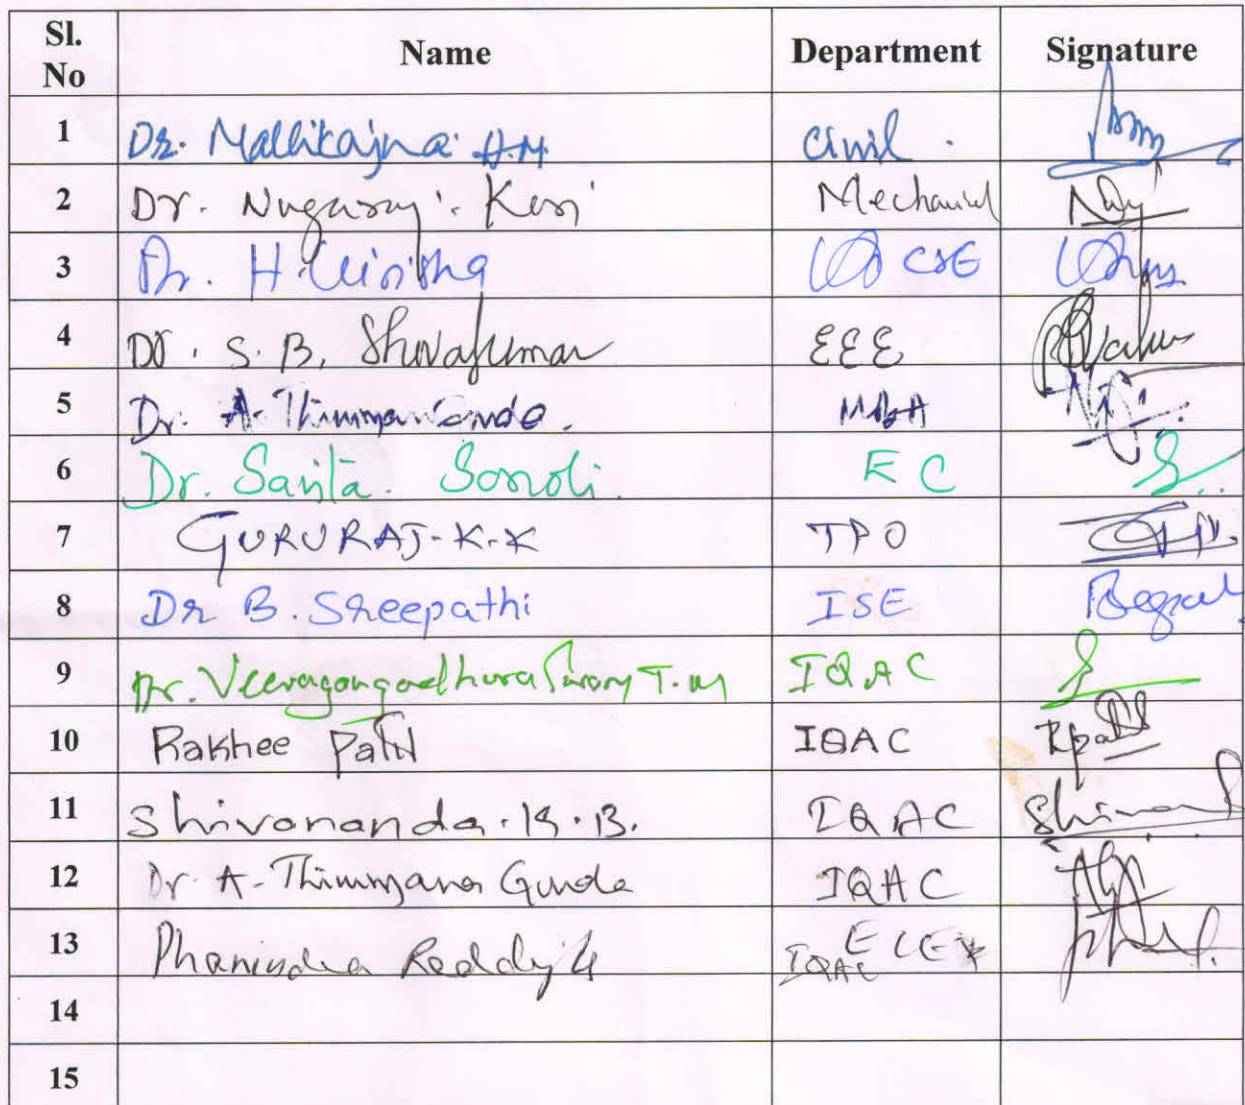 Sl. No Name Department Signature
1 Dr. Mallikajna H.M Civil.
2 Dr. Nagaraj. Keri Mechanical
3 Dr. H. Girisha CSE
4 Dr. S. B. Shivakumar EEE
5 Dr. A. Thimmana Gouda. MBA
6 Dr. Savita. Sonoli. EC
7 GURURAJ.K.K TPO
8 Dr B. Sreepathi ISE
9 Dr. Veeragangadhara Swamy T.M IQAC
10 Rakhee Patil IQAC Rpatil
11 Shivananda.K.B. IQAC
12 Dr. A. Thimmana Gouda IQAC
13 Phanindra Reddy K ECE IQAC
14
15